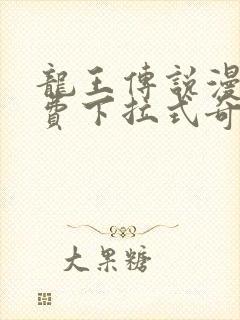 龍王傳説漫
費下拉式奇
大果糖